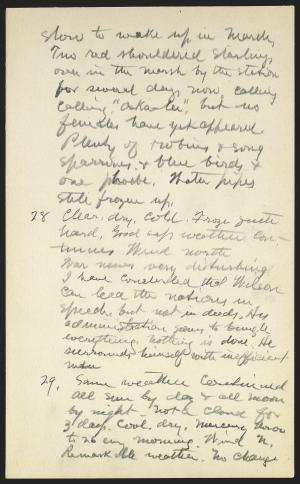 slow to wake up in March,
Two red shouldered starlings
over in the marsh by the station
for several days now, calling
calling, "okalee", but no
females have yet appeared.
Plenty of robins & song
sparrows, & blue birds &
one phoebe. Water pipes
still frozen up.
28 Clear, dry, cold. Froze quite
hard. Good sap weather con-
tinues. Wind north
War news very disturbing
I have concluded that Wilson
can lead the nations in
speech, but not in deeds. His
administration seems to bungle
everything, nothing is done. He
surrounds himself with inefficient
men
29, Same weather continued
all sun by day & all moon
by night - not a cloud for
3 days. Cool, dry, mercury down
to 26 my morning. Wind N,
Remarkable weather. No change